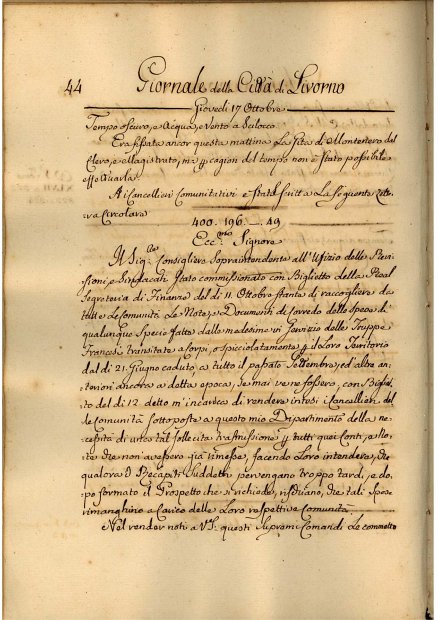 44 Giornale della Città di Livorno
Giovedì 17 Ottobre
Tempo oscuro, e Acqua, e Vento a Scilocco
Era fissata ancor questa mattina La Gita di Montenero del
Clero, e Magistrato, ma p cagion del tempo non è stato possibile
effettuarla
Ai Cancellieri Comunitativi è stata scritta La Seguente Lette
ra Circolare
400. 196. — 49
Ecc.mo Signore
Il Sig.re Consigliere Sopraintendente all'Ufizio delle Revi
sioni, e Sindacati Stato commissionato con Biglietto della Real
Segreteria di Finanze del dì 11. Ottobre stante di raccogliere da
tutte Le Comunità Le Note, e Documenti di Corredo delle spese di
qualunque Specie fatte dalle medesime in Servizio delle Truppe
Francesi transitate a Corpi, o Spicciolatamente p il Loro Territorio
dal dì 21. Giugno caduto, a tutto il passato Settembre, ed altre an
teriori ancora a detta epoca, se mai ve ne fossero, con Bigliet
to del dì 12. detto m'incarica di rendere intesi i Cancellieri del
le Comunità sottoposte a questo mio Dipartimento della ne
cessità di una tal sollecita trasmissione p tutti quei Conti, e No
te che non avessero già rimesse, facendo Loro intendere, che
qualora i Recapiti suddetti pervengano troppo tardi, e do
po formato il Prospetto che si richiede, che tali spese
rimanghino a Carico delle Loro respettive Comunità.
Nel render noti a VS. questi Supremi Comandi Le commetto